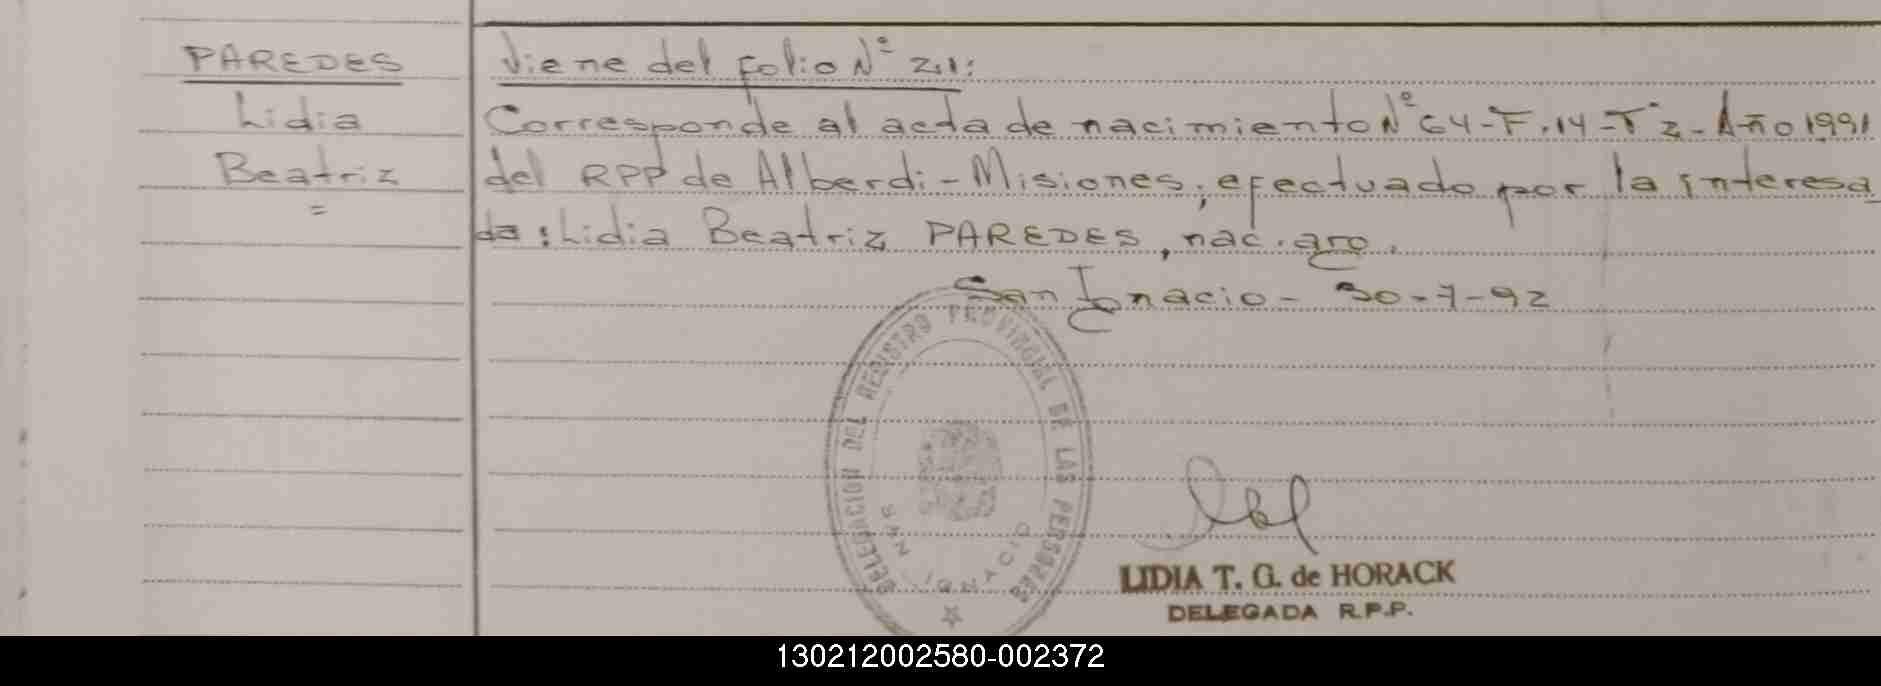 PAREDES
Lidia
Beatriz
=
Viene del folio Nº 21:
Corresponde al acta de nacimiento Nº 64-F.14-Tº2-Año 1991
del RPP de Alberdi-Misiones, efectuado por la interesa
da: Lidia Beatriz PAREDES, nac. arg.
San Ignacio - 30-7-92
DELEGACION DEL REGISTRO PROVINCIAL DE LAS PERSONAS
SAN IGNACIO
LIDIA T. G. de HORACK
DELEGADA R.P.P.
130212002580-002372